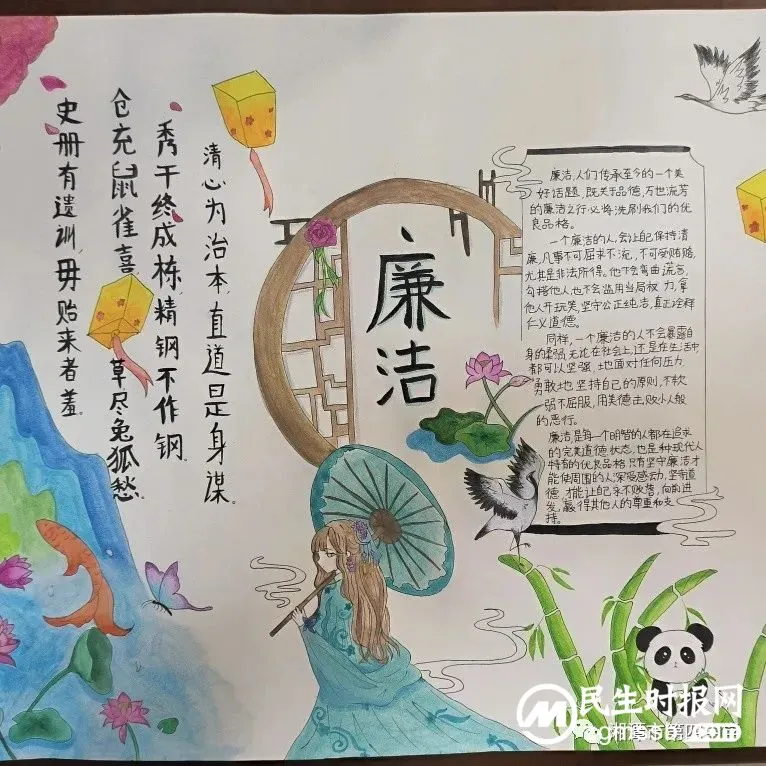 清心为治本,直道是身谋。
秀干终成栋,精钢不作钢。
仓充鼠雀喜 草尽兔狐愁。
史册有遗训,毋贻来者羞。
廉洁
廉洁,人们传承至今的一个美
好话题,既关于品德,万世流芳
的廉洁之行必将洗刷我们的优
良品格。
一个廉洁的人,会让自己保持清
廉,凡事不可屈来不沱,不可受贿赂,
尤其是非法所得。他不会弯曲谎言,
勾搭他人也不会滥用当局权力,拿
他人开玩笑,坚守公正纯洁,真正诠释
仁义道德。
同样,一个廉洁的人不会暴露自
身的柔弱,无论在社会上,还是在生活中
都可以坚强 地面对任何压力,
勇敢地坚持自己的原则,不软
弱不屈服,用美德击败小人般
的恶行。
廉洁是每一个明智的人都在追求
的完美道德状态,也是种现代人
特有的优良品格,只有坚守廉洁才
能使周围的人深受感动,坚守道
德,才能让自己永不败誉,向前进
发,赢得其他人的尊重和支
持。
民生时报网